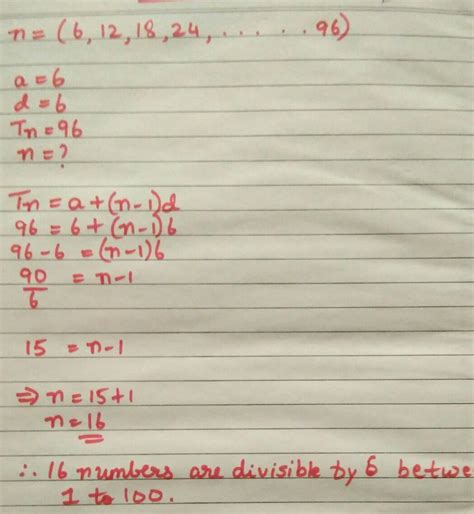 n = (6, 12, 18, 24, . . . . . . 96)
a = 6
d = 6
Tn = 96
n = ?
Tn = a + (n-1)d
96 = 6 + (n-1)6
96 - 6 = (n-1)6
90/6 = n-1
15 = n-1
⇒ n = 15+1
n = 16
∴ 16 numbers are divisible by 6 betwe
1 to 100.